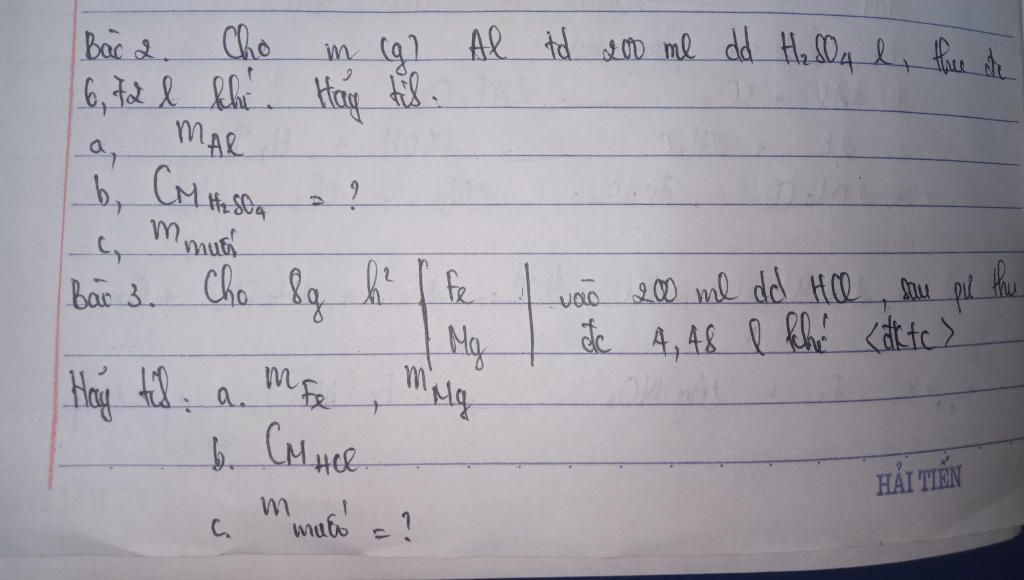 Bài 2. Cho m (g) Al td 200 ml dd H₂SO₄ l, thu đc
6,72 l khí. Hãy tíh.
a, mAl
b, CM H₂SO₄ = ?
c, m muối
Bài 3. Cho 8g h² | Fe | vào 200 ml dd HCl, sau pứ thu
Mg | đc 4,48 l khí <đktc>
Hãy tíh: a. mFe, mMg
b. CM HCl
HẢI TIẾN
c. m muối = ?